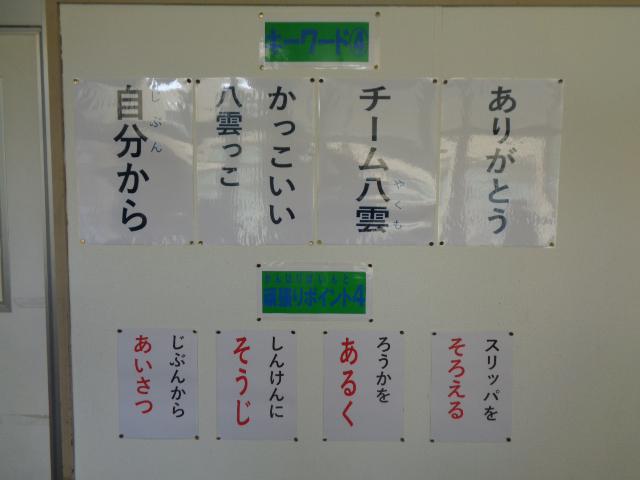 キーワード④
ありがとう
チーム八雲
やくも
かっこいい
八雲っこ
自分から
じぶん
がんばりぽいんと
頑張りポイント4
スリッパを
そろえる
ろうかを
あるく
しんけんに
そうじ
じぶんから
あいさつ